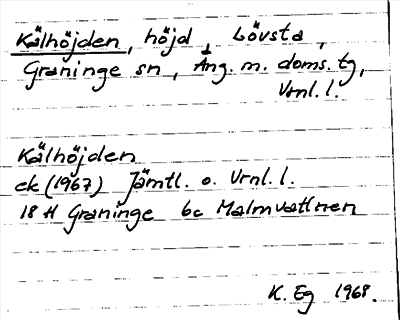 Kälhöjden, höjd i Lövsta,
Graninge sn, Ång. m. doms. tg,
Vrnl. l.
Kälhöjden
ek (1967) Jämtl. o. Vrnl. l.
18 H Graninge bc Malmvattnen
K. Eg 1968.